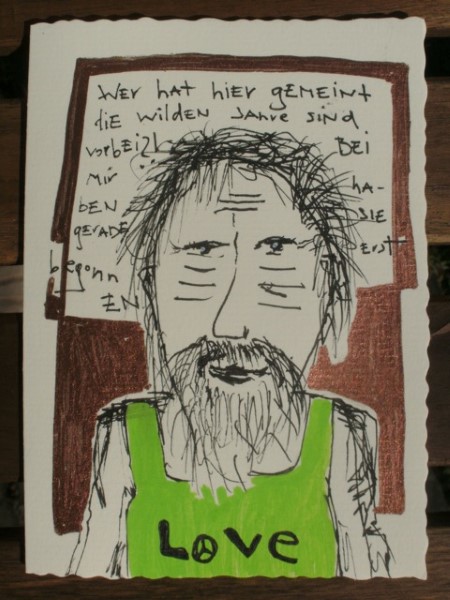 Wer hat hier gemeint
die wilden Jahre sind
vorbei?! Bei
mir ha-
ben sie
gerade erst
begonn
en
Love